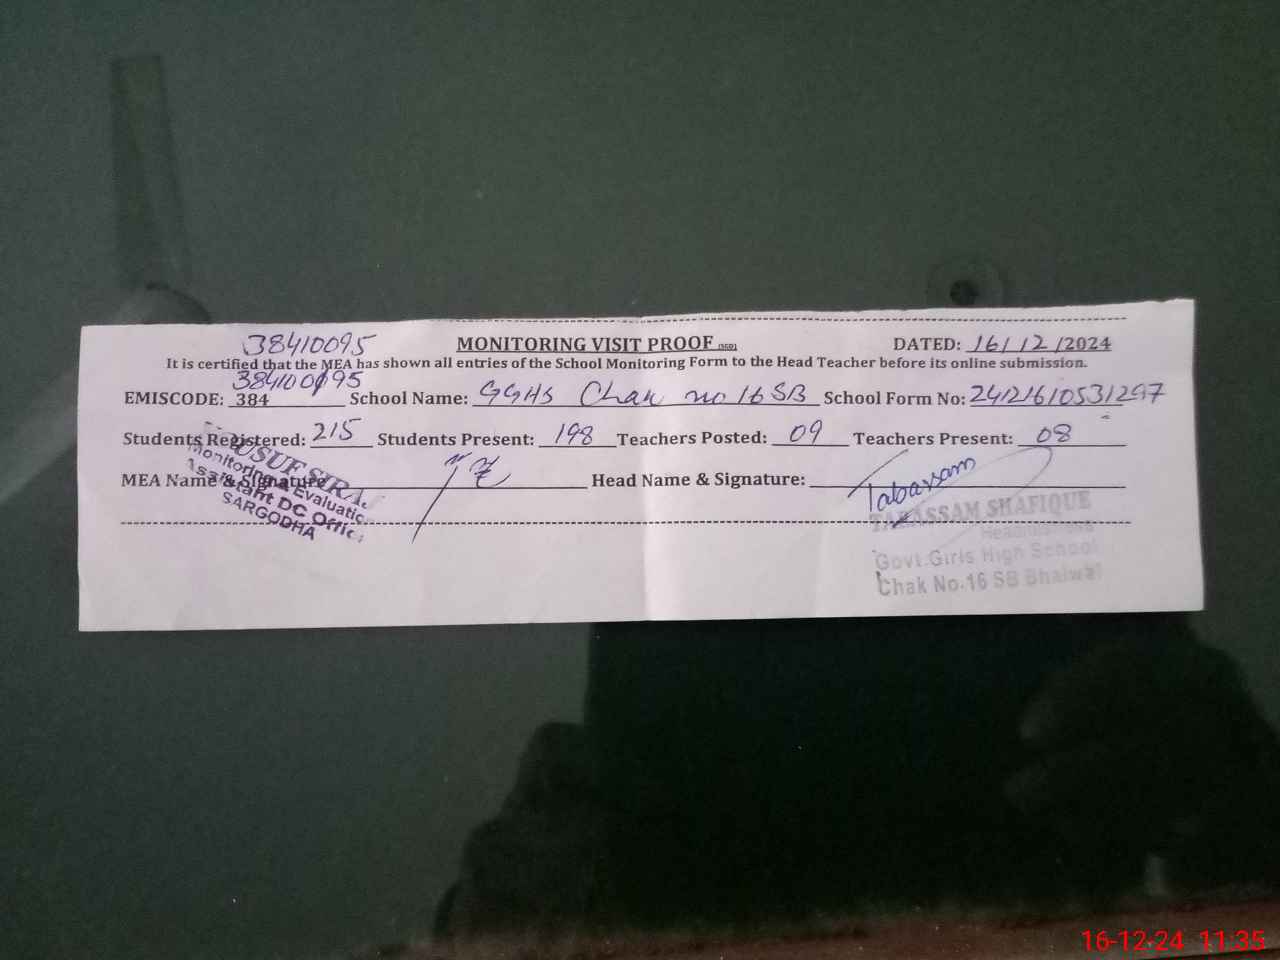 38410095 MONITORING VISIT PROOF (SGD) DATED: 16/12/2024
It is certified that the MEA has shown all entries of the School Monitoring Form to the Head Teacher before its online submission.
38410095
EMISCODE: 384 School Name: GGHS Chak no 16 SB School Form No: 24121610531297
Students Registered: 215 Students Present: 198 Teachers Posted: 09 Teachers Present: 08
MEA Name & Signature Head Name & Signature: Tabassam
YUSUF SIRAJ
Monitoring & Evaluation
Assistant DC Office
SARGODHA
TABASSAM SHAFIQUE
Headmistress
Govt.Girls High School
Chak No.16 SB Bhalwal
16-12-24 11:35